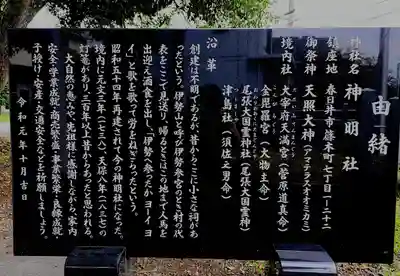 由緒
神社名 神明社
鎮座地 春日井市篠木町七丁目一ー二十二
御祭神 天照大神(アマテラスオオミカミ)
境内社 大宰府天満宮(菅原道真命)
金毘羅社(大物主命)
尾張大国霊神社(尾張大国霊神)
津島社(須佐之男命)
沿革
創建は不明であるが、昔から、ここに小さな祠があ
ったという。「伊勢山」と呼び、伊勢参宮のとき村の代
表をここで見送り、帰るときはこの地まで人馬を
出迎え酒食を出し、「伊勢へ参ったが、ヨーイヨ
イ」と歌を歌って労をねぎらったという。
昭和五十四年再建されて今の神明社になった。
境内に元文三年(一七三八)、天保八年(一八三七)の
灯篭があり、二百年以上も昔からあったと思われる。
大自然の恵みや、先祖様に感謝しながら、家内
安全・学業成就・商売繁盛・事業繁栄・良縁成就・
子授け・安産・交通安全などを祈願しましょう。
令和元年十月吉日